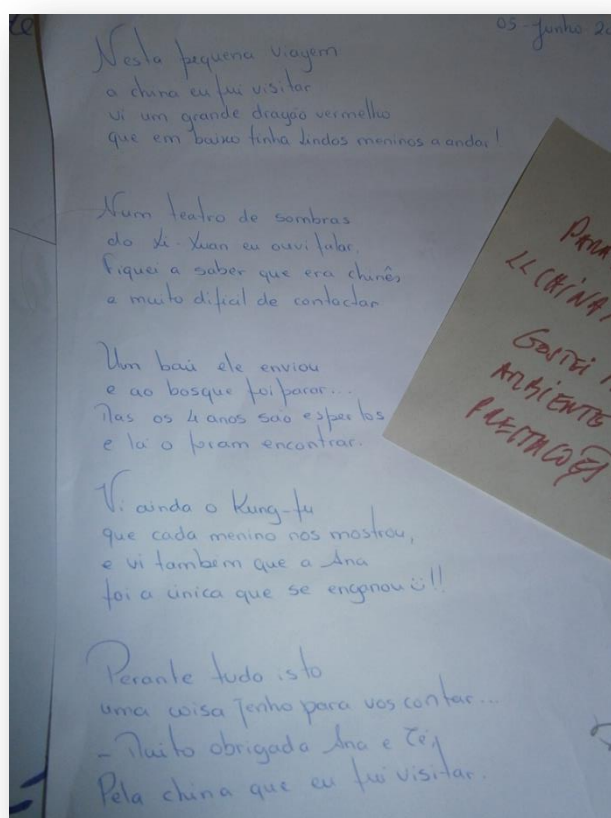 05-Junho 20
Nesta pequena viagem
a china eu fui visitar
vi um grande dragão vermelho
que em baixo tinha lindos meninos a andar!
Num teatro de sombras
do Xi-Xuan eu ouvi falar.
Fiquei a saber que era chinês
e muito dificil de contactar
Um baú ele enviou
e ao bosque foi parar...
Mas os 4 anos são espertos
e lá o foram encontrar.
Vi ainda o Kung-fu
que cada menino nos mostrou,
e vi também que a Ana
foi a única que se enganou!!
Perante tudo isto
uma coisa tenho para vos contar...
- Muito obrigada Ana e
Pela china que eu fui visitar.
PARA
"CHINA
GOSTEI
AMBIENTE